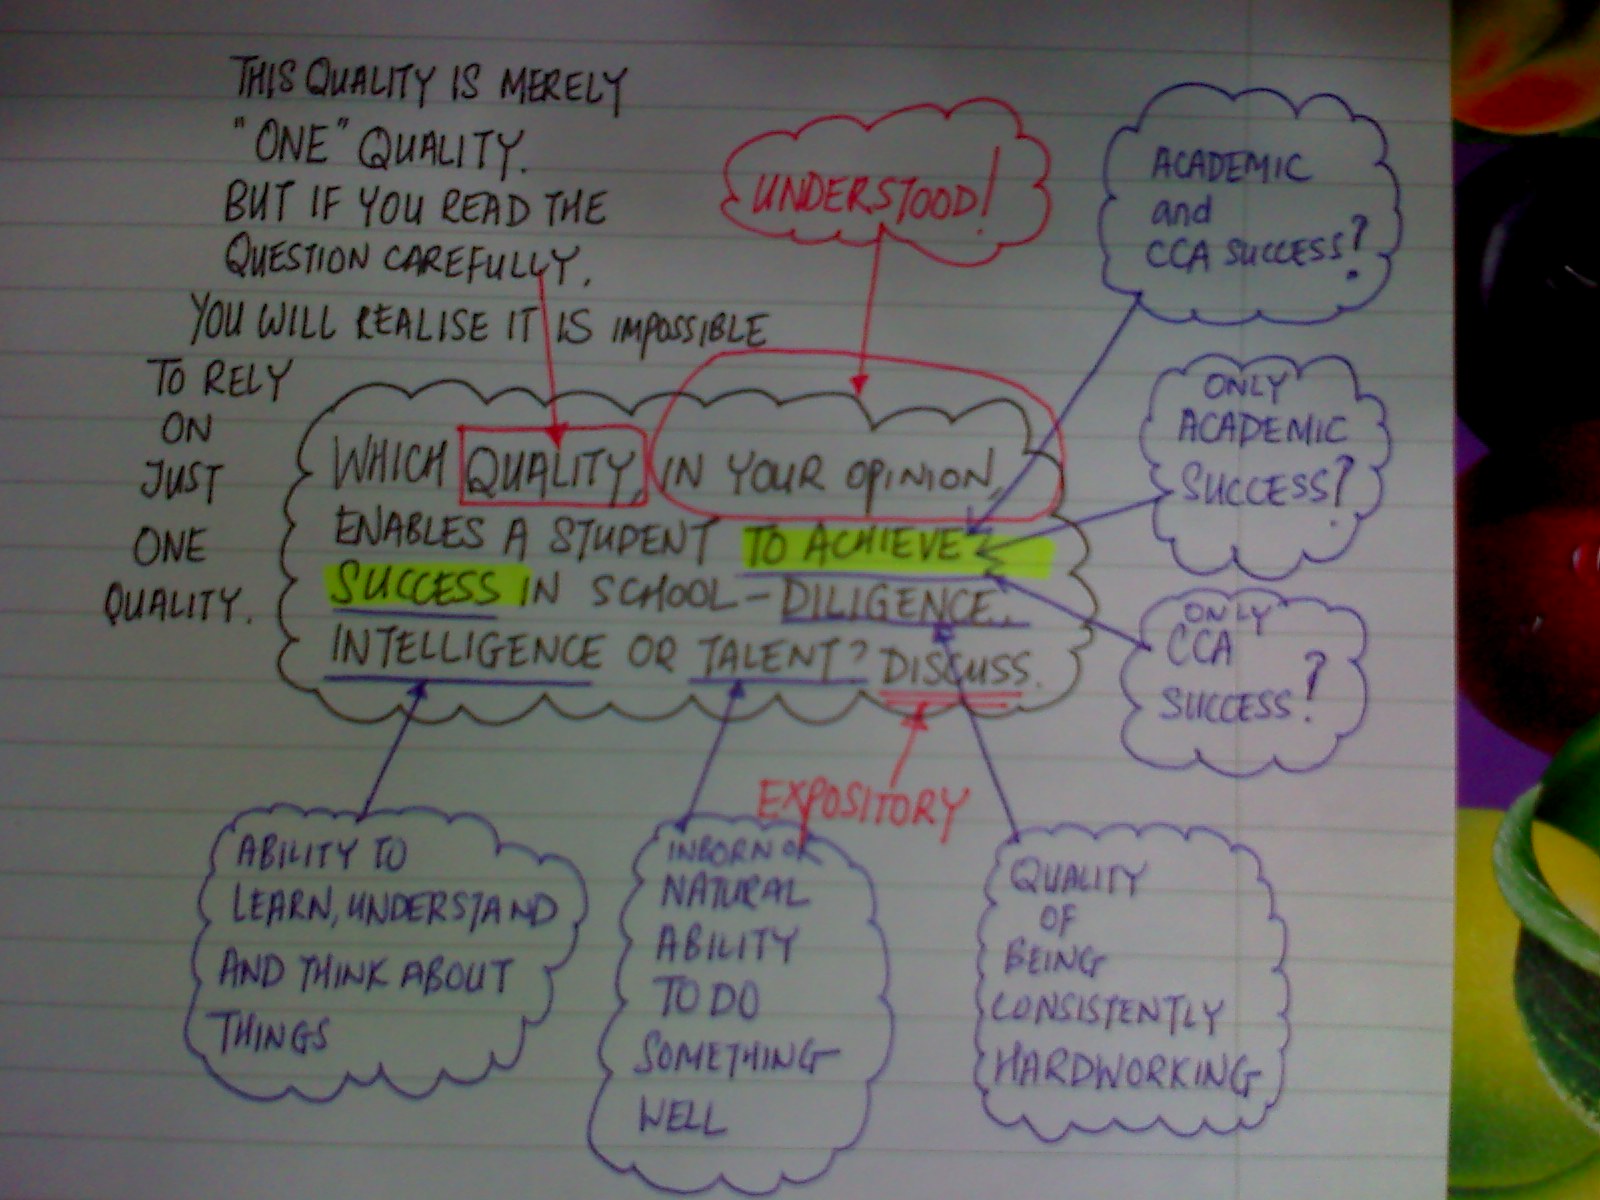 THIS QUALITY IS MERELY
"ONE" QUALITY.
BUT IF YOU READ THE
QUESTION CAREFULLY.
YOU WILL REALISE IT IS IMPOSSIBLE
TO RELY
ON
JUST
ONE
QUALITY.
UNDERSTOOD!
ACADEMIC
and
CCA SUCCESS?
ONLY
ACADEMIC
SUCCESS?
ONLY
CCA
SUCCESS?
WHICH QUALITY, IN YOUR OPINION,
ENABLES A STUDENT TO ACHIEVE
SUCCESS IN SCHOOL - DILIGENCE,
INTELLIGENCE OR TALENT? DISCUSS.
EXPOSITORY
ABILITY TO
LEARN, UNDERSTAND
AND THINK ABOUT
THINGS
INBORN OR
NATURAL
ABILITY
TO DO
SOMETHING
WELL
QUALITY
OF
BEING
CONSISTENTLY
HARDWORKING